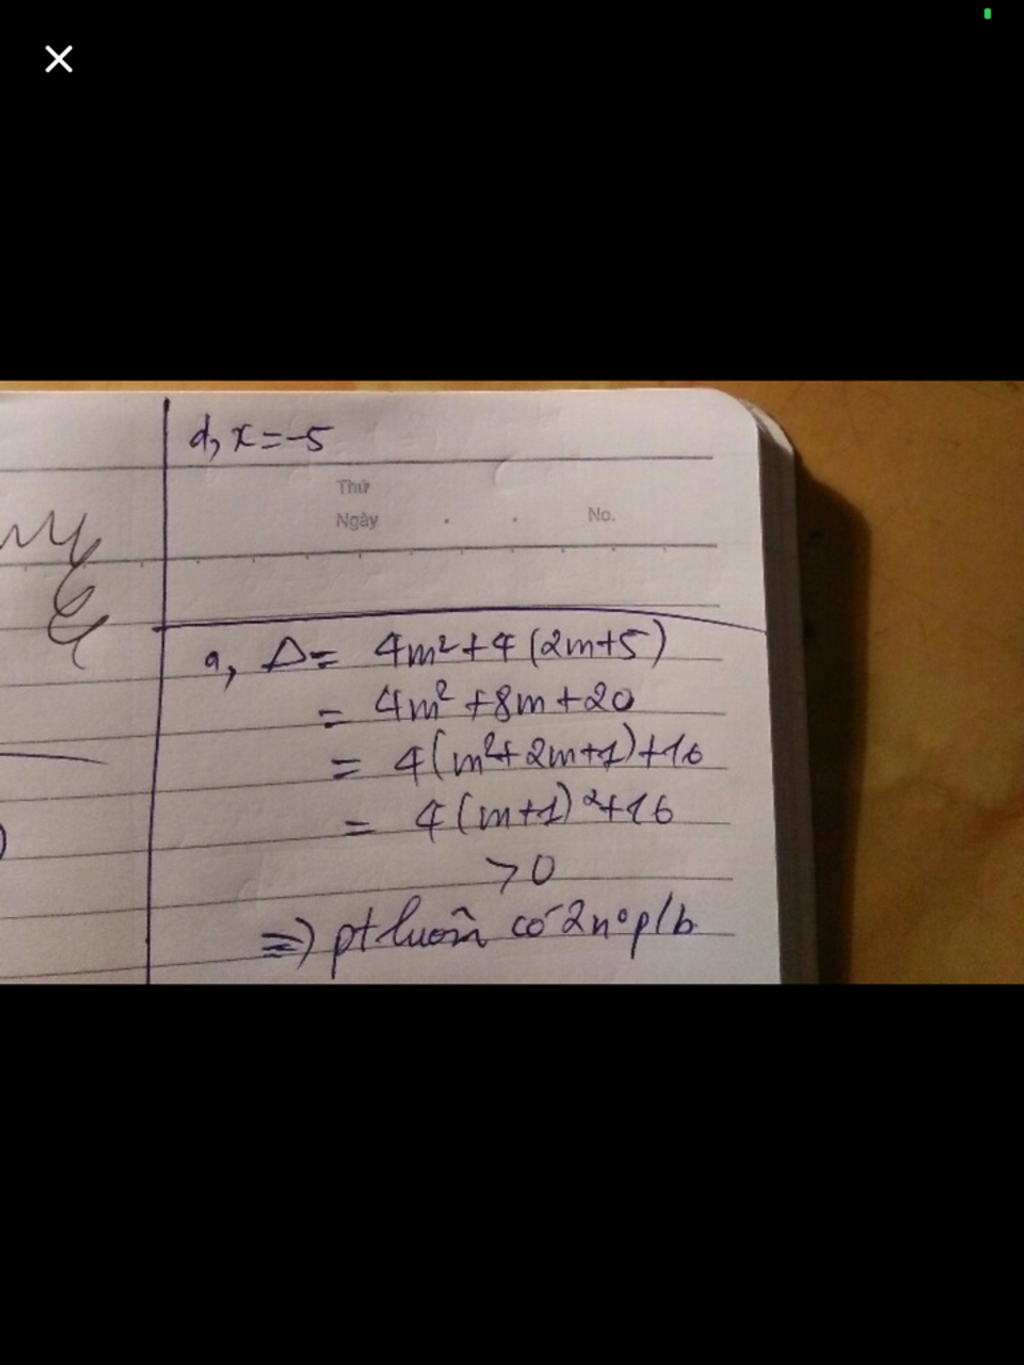 d, x = -5
Thứ
Ngày . . No.
a, Δ = 4m² + 4 (2m+5)
= 4m² + 8m + 20
= 4(m² + 2m + 1) + 16
= 4(m+1)² + 16
> 0
=> pt luôn có 2 n° p/b